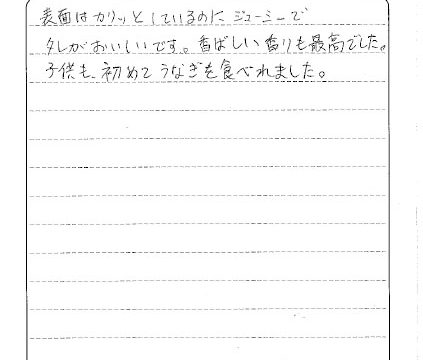 表面はカリッとしているのにジューシーで
タレがおいしいです。香ばしい香りも最高でした。
子供も、初めてうなぎを食べれました。